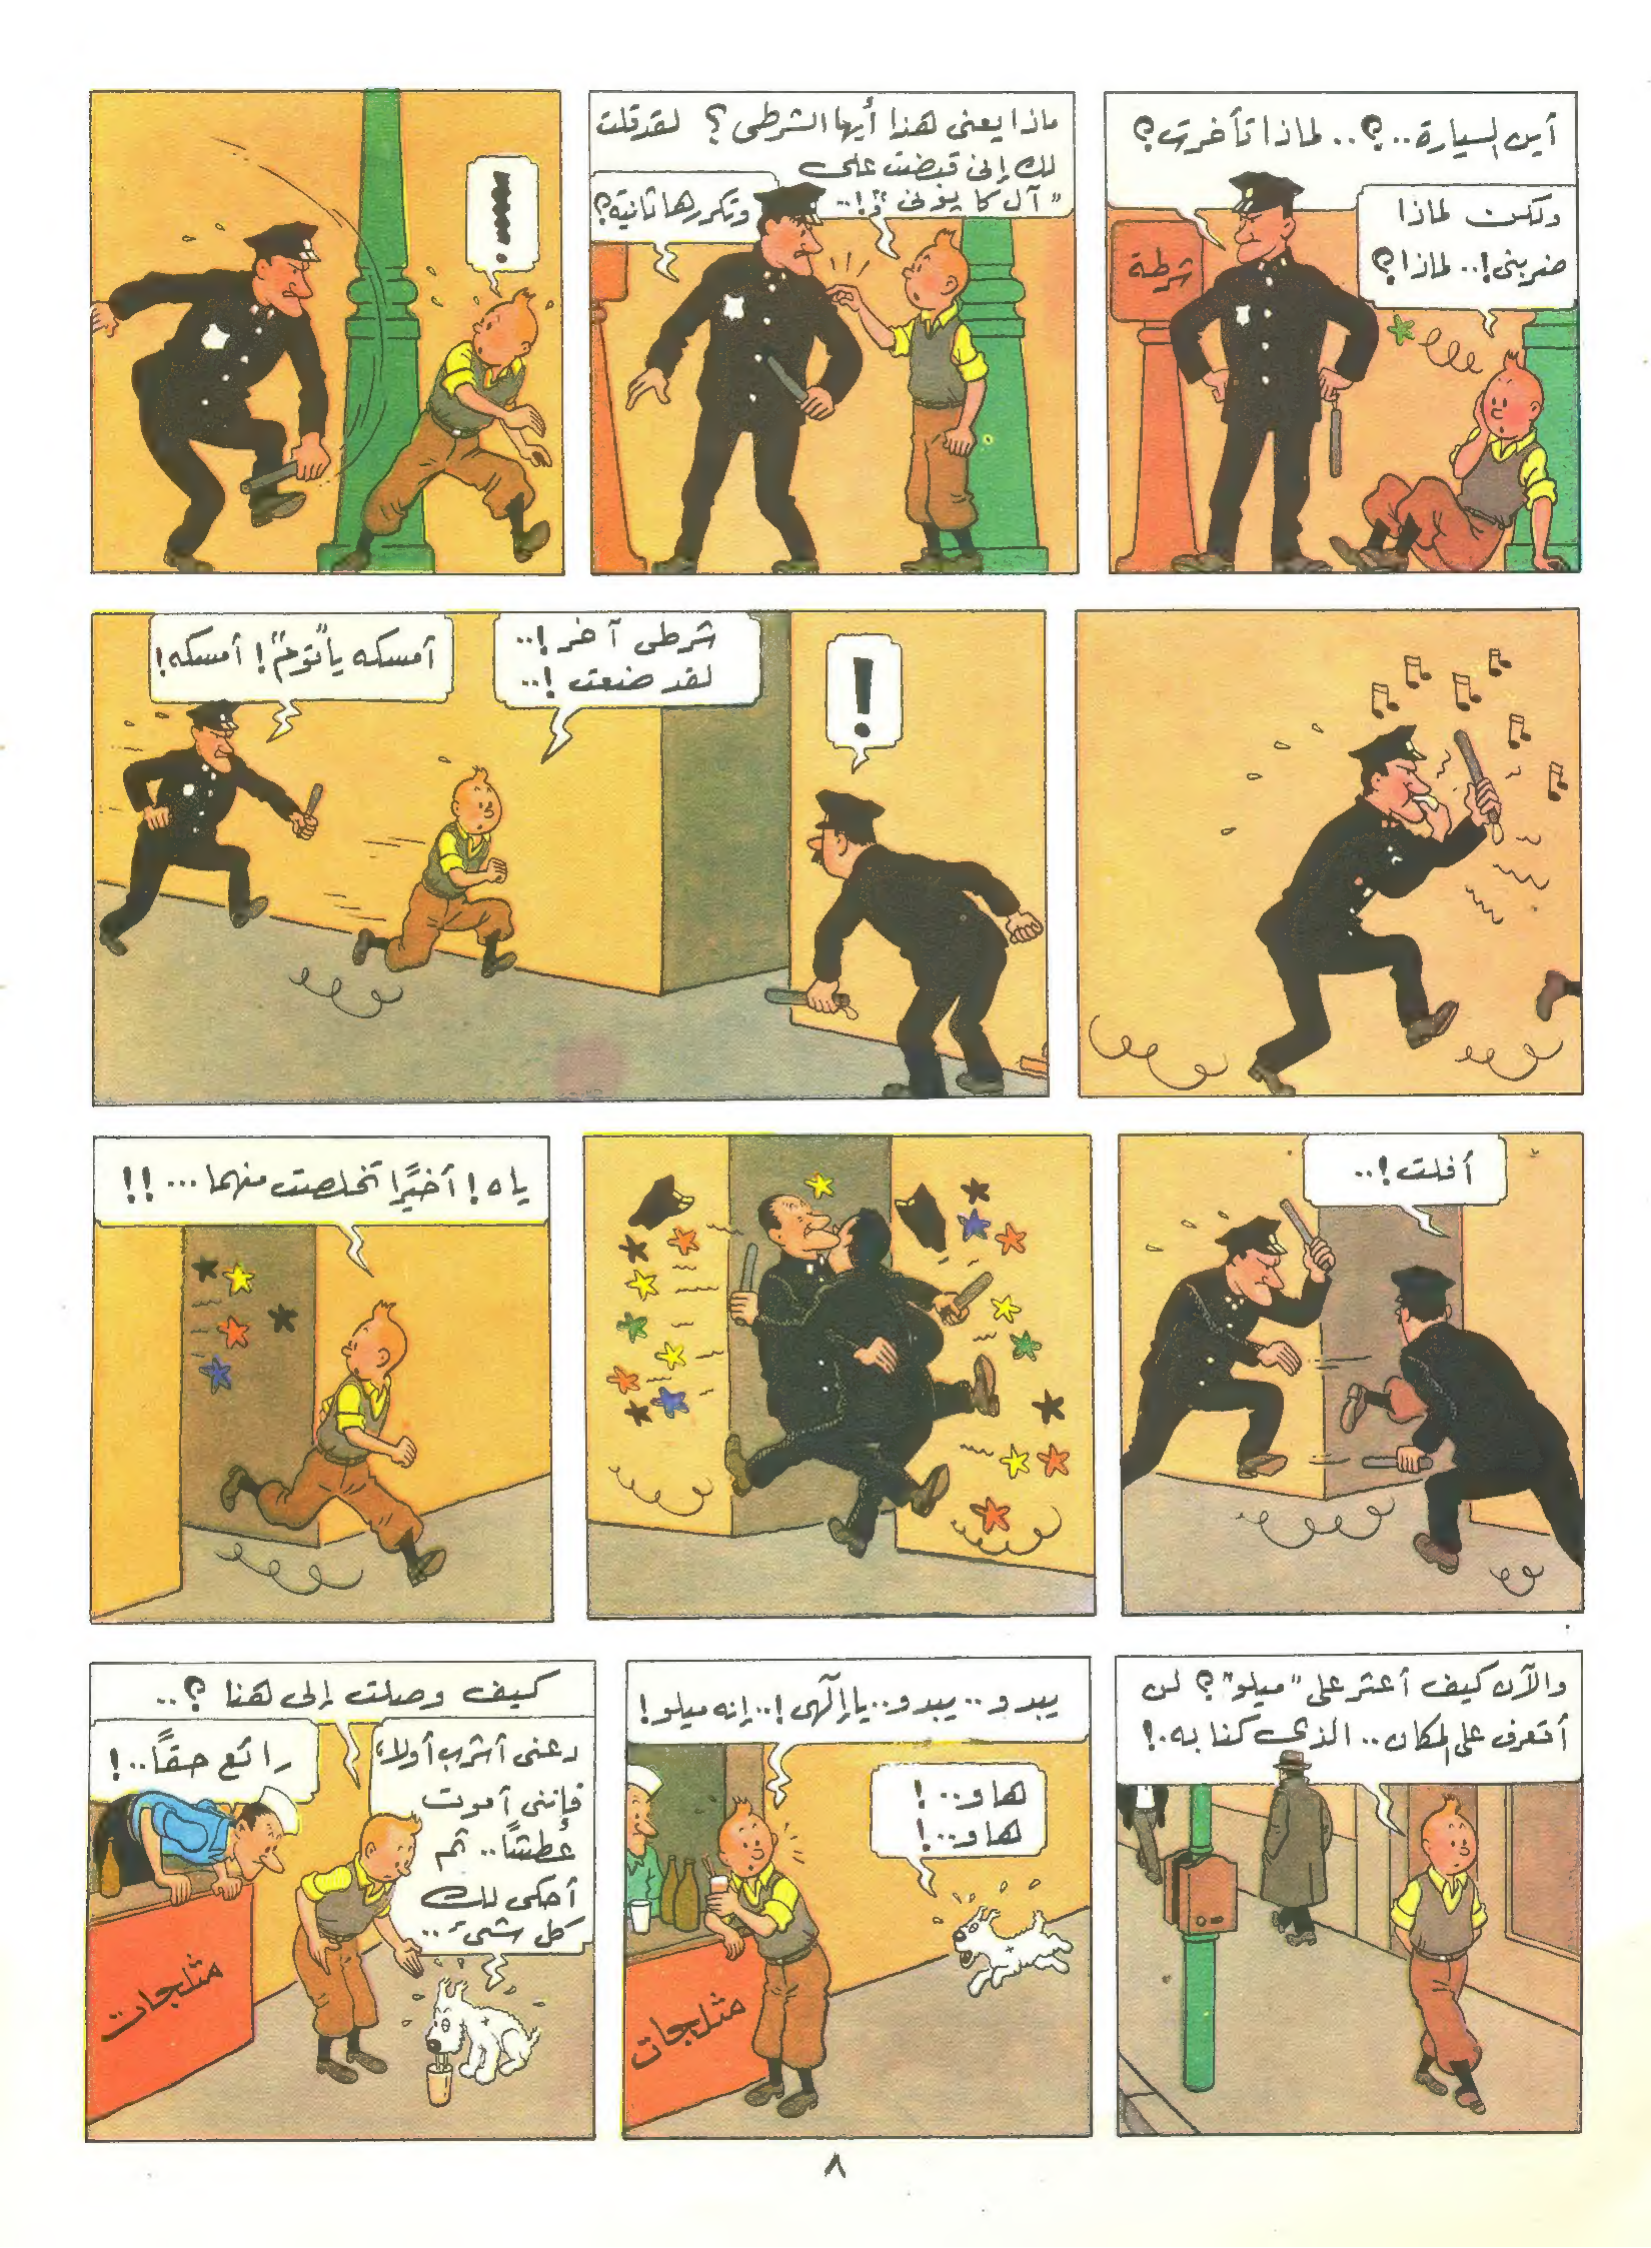 أين السيارة..؟.. لماذا تأخرت؟
ولكن لماذا
ضربني!.. لماذا؟
شرطة
ماذا يعنى هذا أيها الشرطى؟ لقد قلت
لك إنى قبضت على
"آل كابونى"!..
وتكررها ثانية؟
!
شرطى آخر!..
لقد ضعت!..
أمسكه يا "توم"! أمسكه!
أفلت!..
ياه! أخيرًا تخلصت منهما...!!
والآن كيف أعثر على "ميلو"؟ لن
أتعرف على المكان.. الذى كنا به.!
يبدو.. يبدو.. يا إلهى!.. إنه ميلو!
هاو..!
هاو..!
مثلجات
كيف وصلت إلى هنا؟..
دعنى أشرب أولاً،
فإننى أموت
عطشًا.. ثم
أحكى لك
كل شئ..
رائع حقًا..!
مثلجات
٨